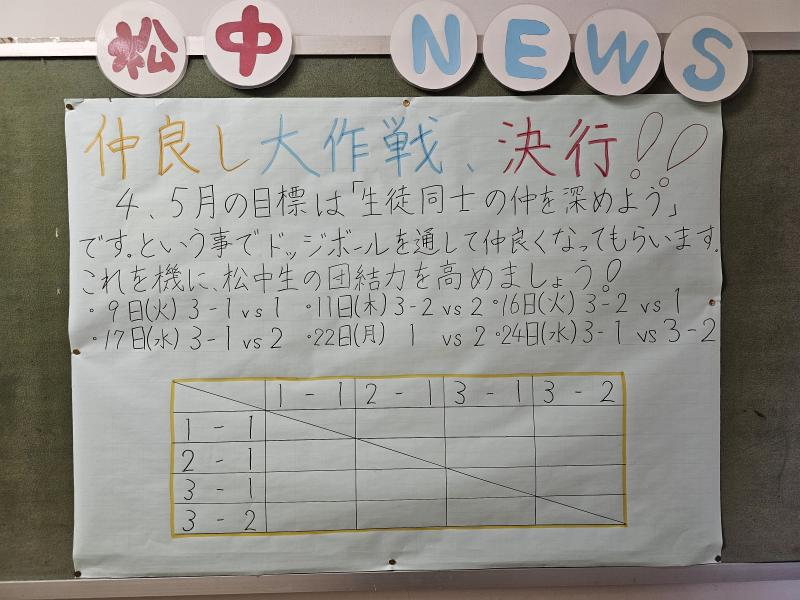 松中 NEWS
仲良し大作戦、決行!!
4、5月の目標は「生徒同士の仲を深めよう」
です。という事でドッジボールを通して仲良くなってもらいます。
これを機に、松中生の団結力を高めましょう!
・9日(火) 3-1 vs 1 ・11日(木) 3-2 vs 2 ・16日(火) 3-2 vs 1
・17日(水) 3-1 vs 2 ・22日(月) 1 vs 2 ・24日(水) 3-1 vs 3-2
1-1 2-1 3-1 3-2
1-1
2-1
3-1
3-2